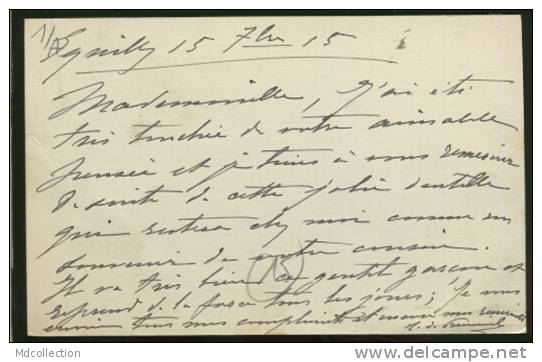 15 7bre 15
Mademoiselle, J'ai été
très touchée de votre aimable
pensée et je tiens à vous remercier
de suite de cette jolie dentelle
qui restera chez moi comme un
souvenir de votre cousin.
Il va très bien ce gentil garçon et
reprend de la force tous les jours; Je vous
envoie tous mes compliments et encore mes remerciements
15
Mycollection
www.delcampe.net